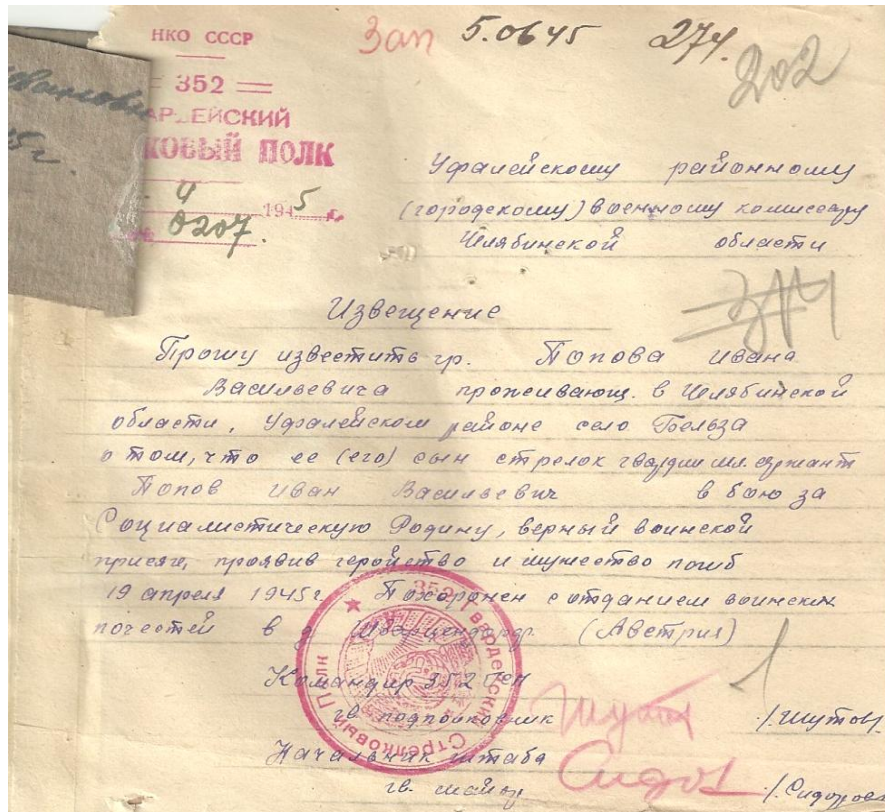 НКО СССР
Зап 5.0645 274.
202
352
АРДЕЙСКИЙ
КОВЫЙ ПОЛК
4 1945 г.
0207.
Уфалейскому районному
(городскому) военному комиссару
Челябинской области
Извещение
Прошу известить гр. Попова Ивана
Васильевича проживающ. в Челябинской
области, Уфалейском районе село
о том, что ее (его) сын стрелок гвардии мл. сержант
Попов Иван Васильевич в бою за
Социалистическую Родину, верный воинской
присяге, проявив геройство и мужество погиб
19 апреля 1945г. Похоронен с отданием воинских
почестей в д. (Австрия)
Командир 352 ГСП
гв. подполковник /Шутов/
Начальник штаба
гв. майор /Сидоров
352 Гвардейский Стрелковый Полк